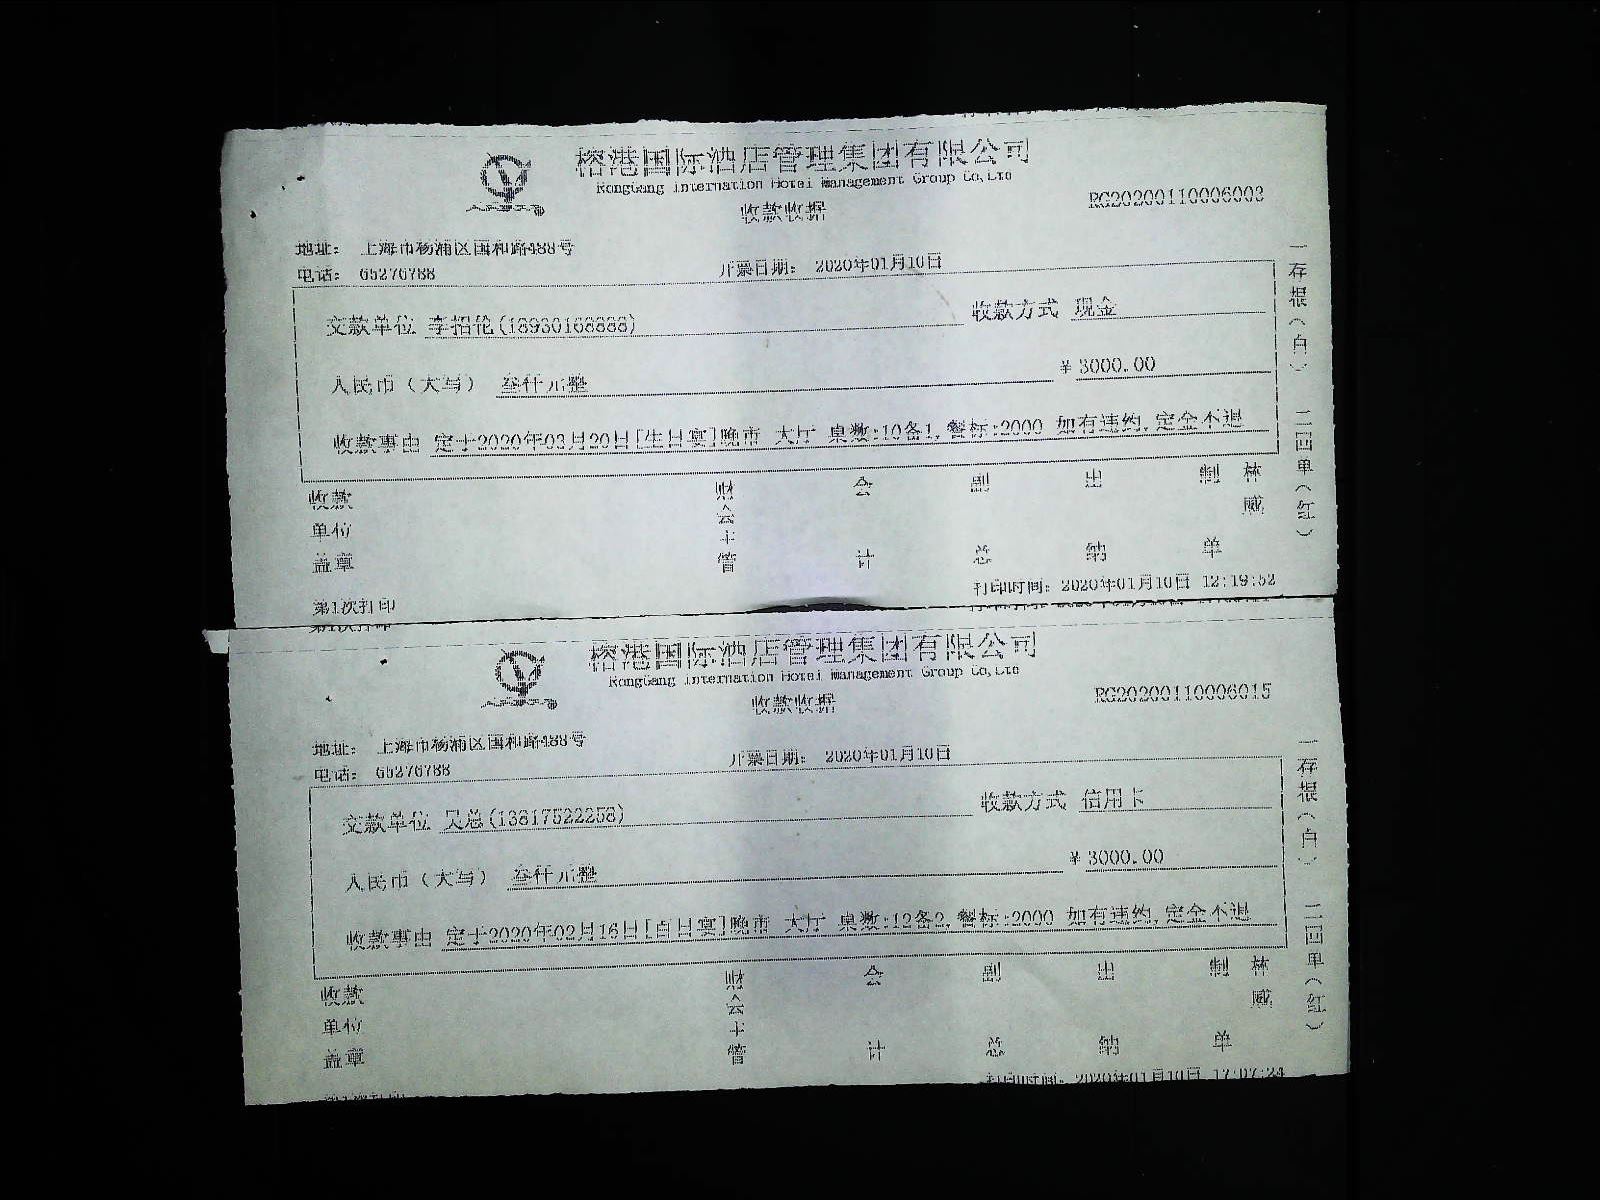 榕港国际酒店管理集团有限公司
RongGang internation Hotel Management Group Co,Ltd
收款收据
RG20200110006003
地址： 上海市杨浦区国和路488号
电话： 65276788
开票日期： 2020年01月10日
交款单位 李招伦(18930168888)
收款方式 现金
人民币（大写） 叁仟元整
¥ 3000.00
收款事由 定于2020年03月20日[生日宴]晚市 大厅 桌数:10备1,餐标:2000 如有违约,定金不退
收款单位盖章
财会主管
会计
副总
出纳
制单
林威
一存根（白）
二回单（红）
第1次打印
打印时间：2020年01月10日 12:19:52
榕港国际酒店管理集团有限公司
RongGang internation Hotel Management Group Co,Ltd
收款收据
RG20200110006015
地址： 上海市杨浦区国和路488号
电话： 65276788
开票日期： 2020年01月10日
交款单位 吴总(13817522258)
收款方式 信用卡
人民币（大写） 叁仟元整
¥ 3000.00
收款事由 定于2020年02月16日[百日宴]晚市 大厅 桌数:12备2,餐标:2000 如有违约,定金不退
收款单位盖章
财会主管
会计
副总
出纳
制单
林威
一存根（白）
二回单（红）
第1次打印
打印时间：2020年01月10日 17:07:24